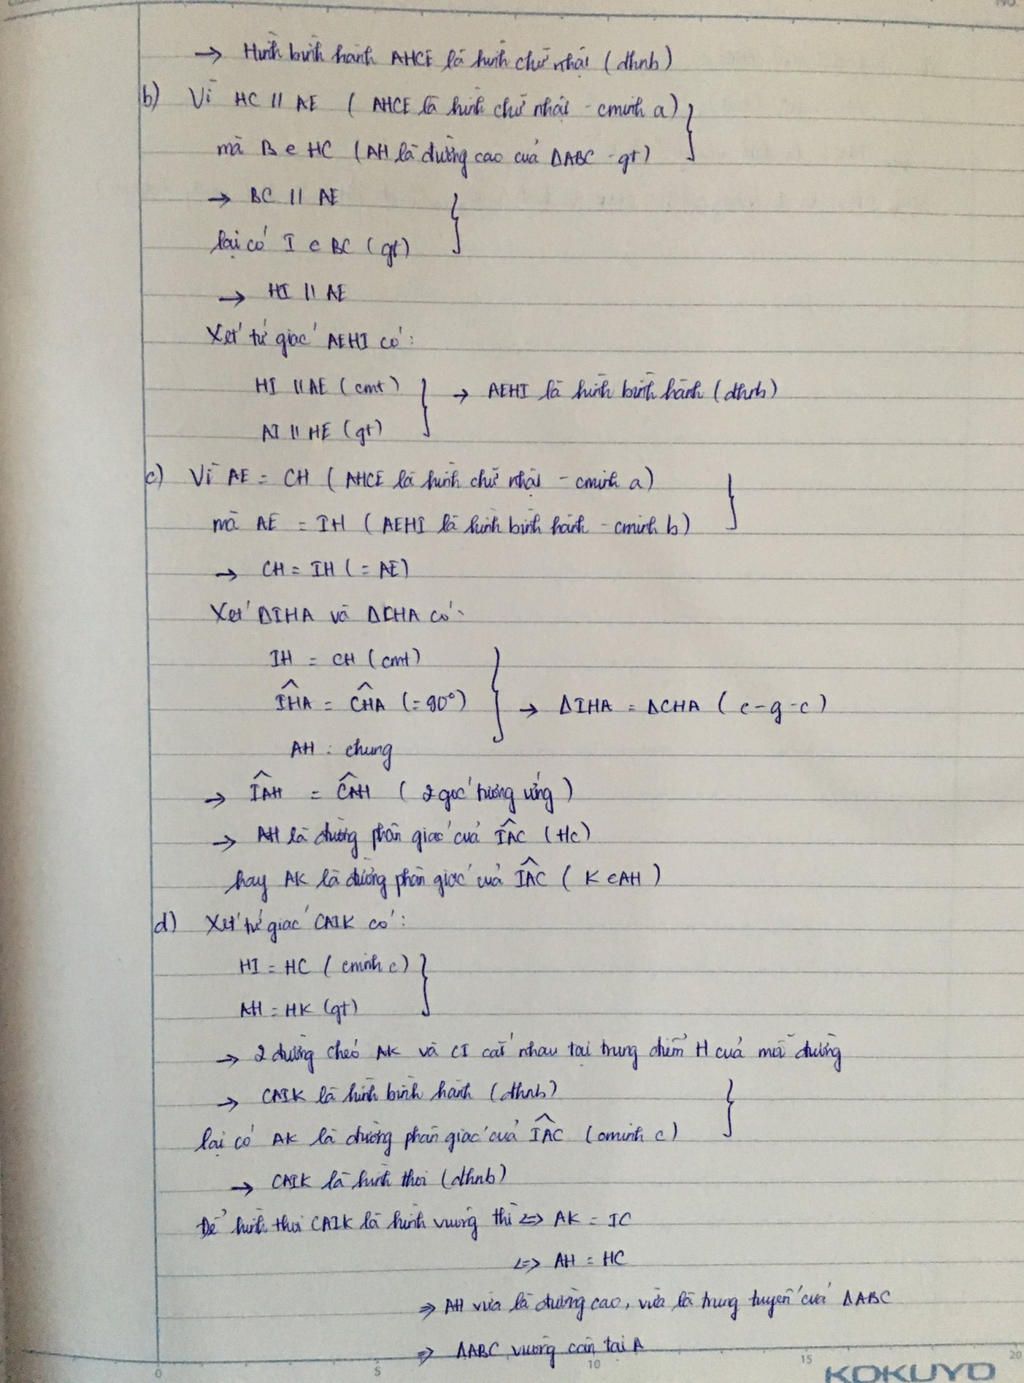 NO.
→ Hình bình hành AHCE là hình chữ nhật (dhnb)
b) Vì HC // AE ( AHCE là hình chữ nhật - cminh a) }
mà B ∈ HC (AH là đường cao của ΔABC - gt)
→ BC // AE }
lại có I ∈ BC (gt)
→ HI // AE
Xét tứ giác AEHI có:
HI // AE (cmt) } → AEHI là hình bình hành (dhnb)
AI // HE (gt)
c) Vì AE = CH ( AHCE là hình chữ nhật - cminh a) }
mà AE = IH ( AEHI là hình bình hành - cminh b)
→ CH = IH (= AE)
Xét ΔIHA và ΔCHA có:
IH = CH (cmt) }
ÎHA = ĈHA (= 90°) → ΔIHA = ΔCHA ( c-g-c )
AH : chung
→ ÎAH = ĈAH ( 2 góc tương ứng )
→ AH là đường phân giác của ÎAC (t/c)
hay AK là đường phân giác của ÎAC ( K ∈ AH )
d) Xét tứ giác CAIK có:
HI = HC ( cminh c) }
AH = HK (gt)
→ 2 đường chéo AK và CI cắt nhau tại trung điểm H của mỗi đường
→ CAIK là hình bình hành (dhnb) }
lại có AK là đường phân giác của ÎAC (cminh c)
→ CAIK là hình thoi (dhnb)
Để hình thoi CAIK là hình vuông thì <=> AK = IC
<=> AH = HC
=> AH vừa là đường cao, vừa là trung tuyến của ΔABC
=> ΔABC vuông cân tại A
0 5 10 15 20
KOKUYO